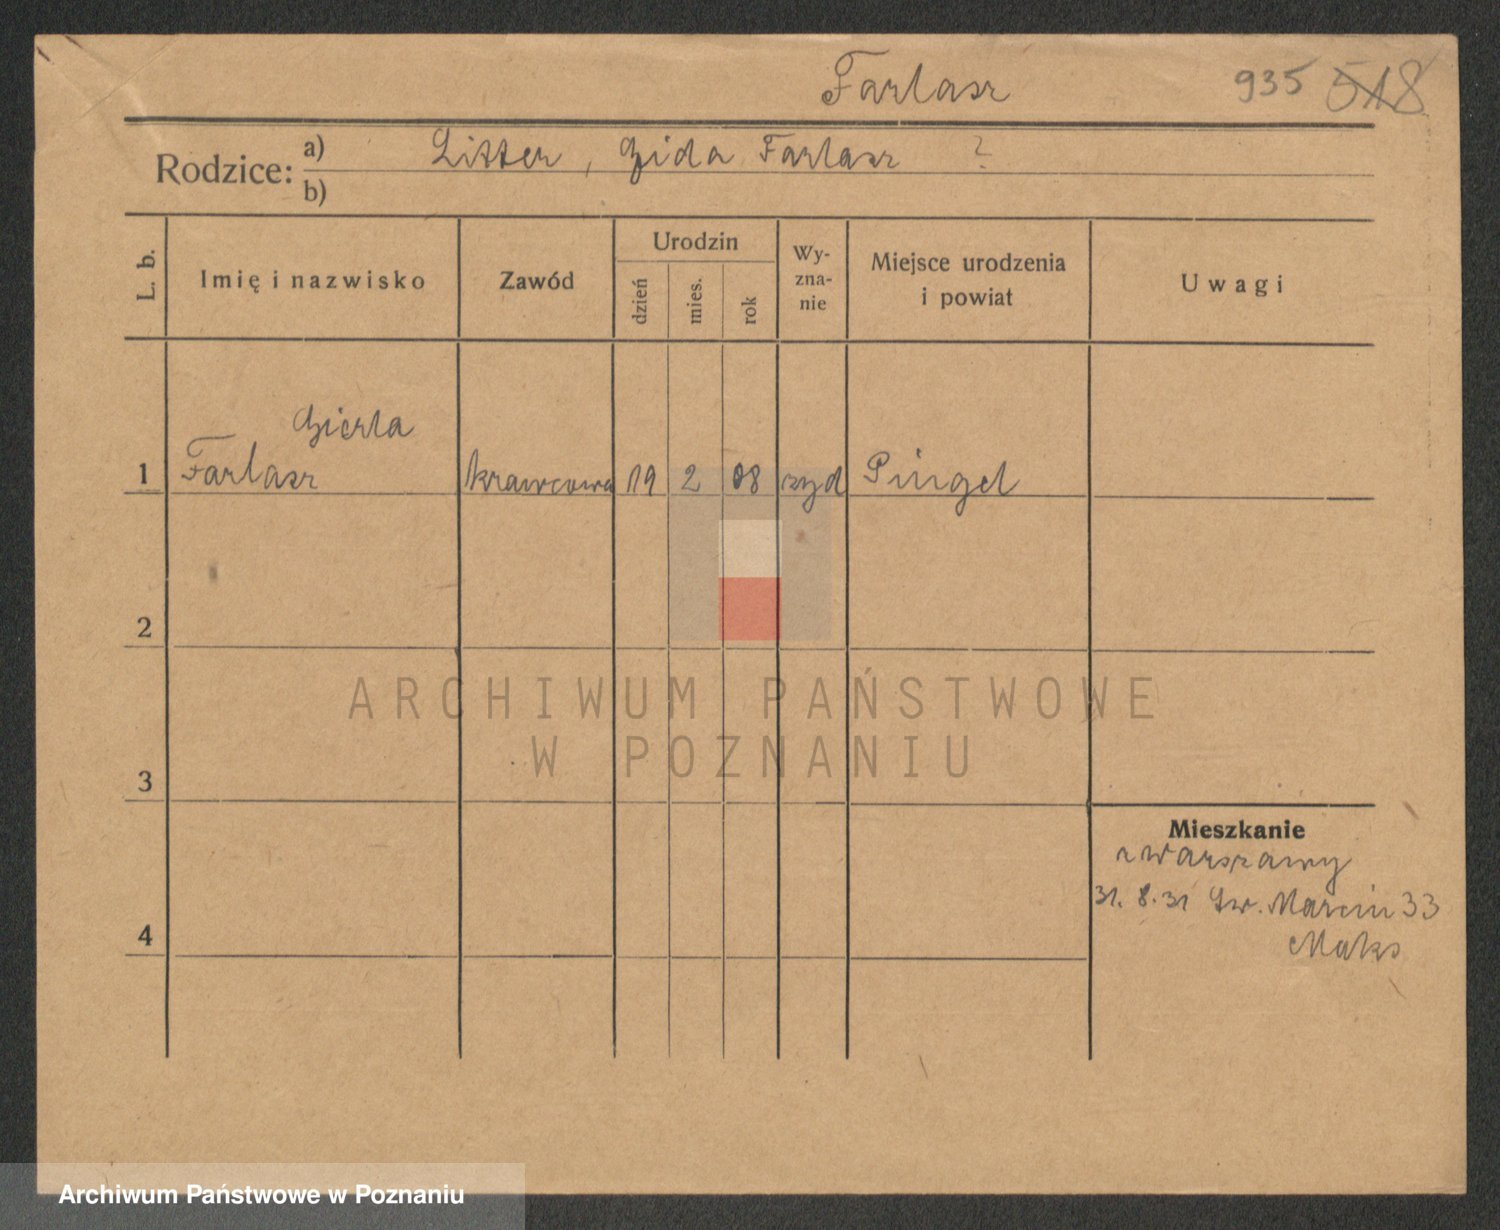 Farlasz 935 518
Rodzice: a) Litter, Gida Farlasz ?
b)
L. b. Imię i nazwisko Zawód Urodzin dzień mies. rok Wyznanie Miejsce urodzenia i powiat Uwagi
Gierla
1 Farlasz krawcowa 19 2 08 żyd Pingel
2
ARCHIWUM PAŃSTWOWE
W POZNANIU
3
Mieszkanie
z Warszawy
31. 8. 31 Św. Marcin 33
4
Maks
Archiwum Państwowe w Poznaniu